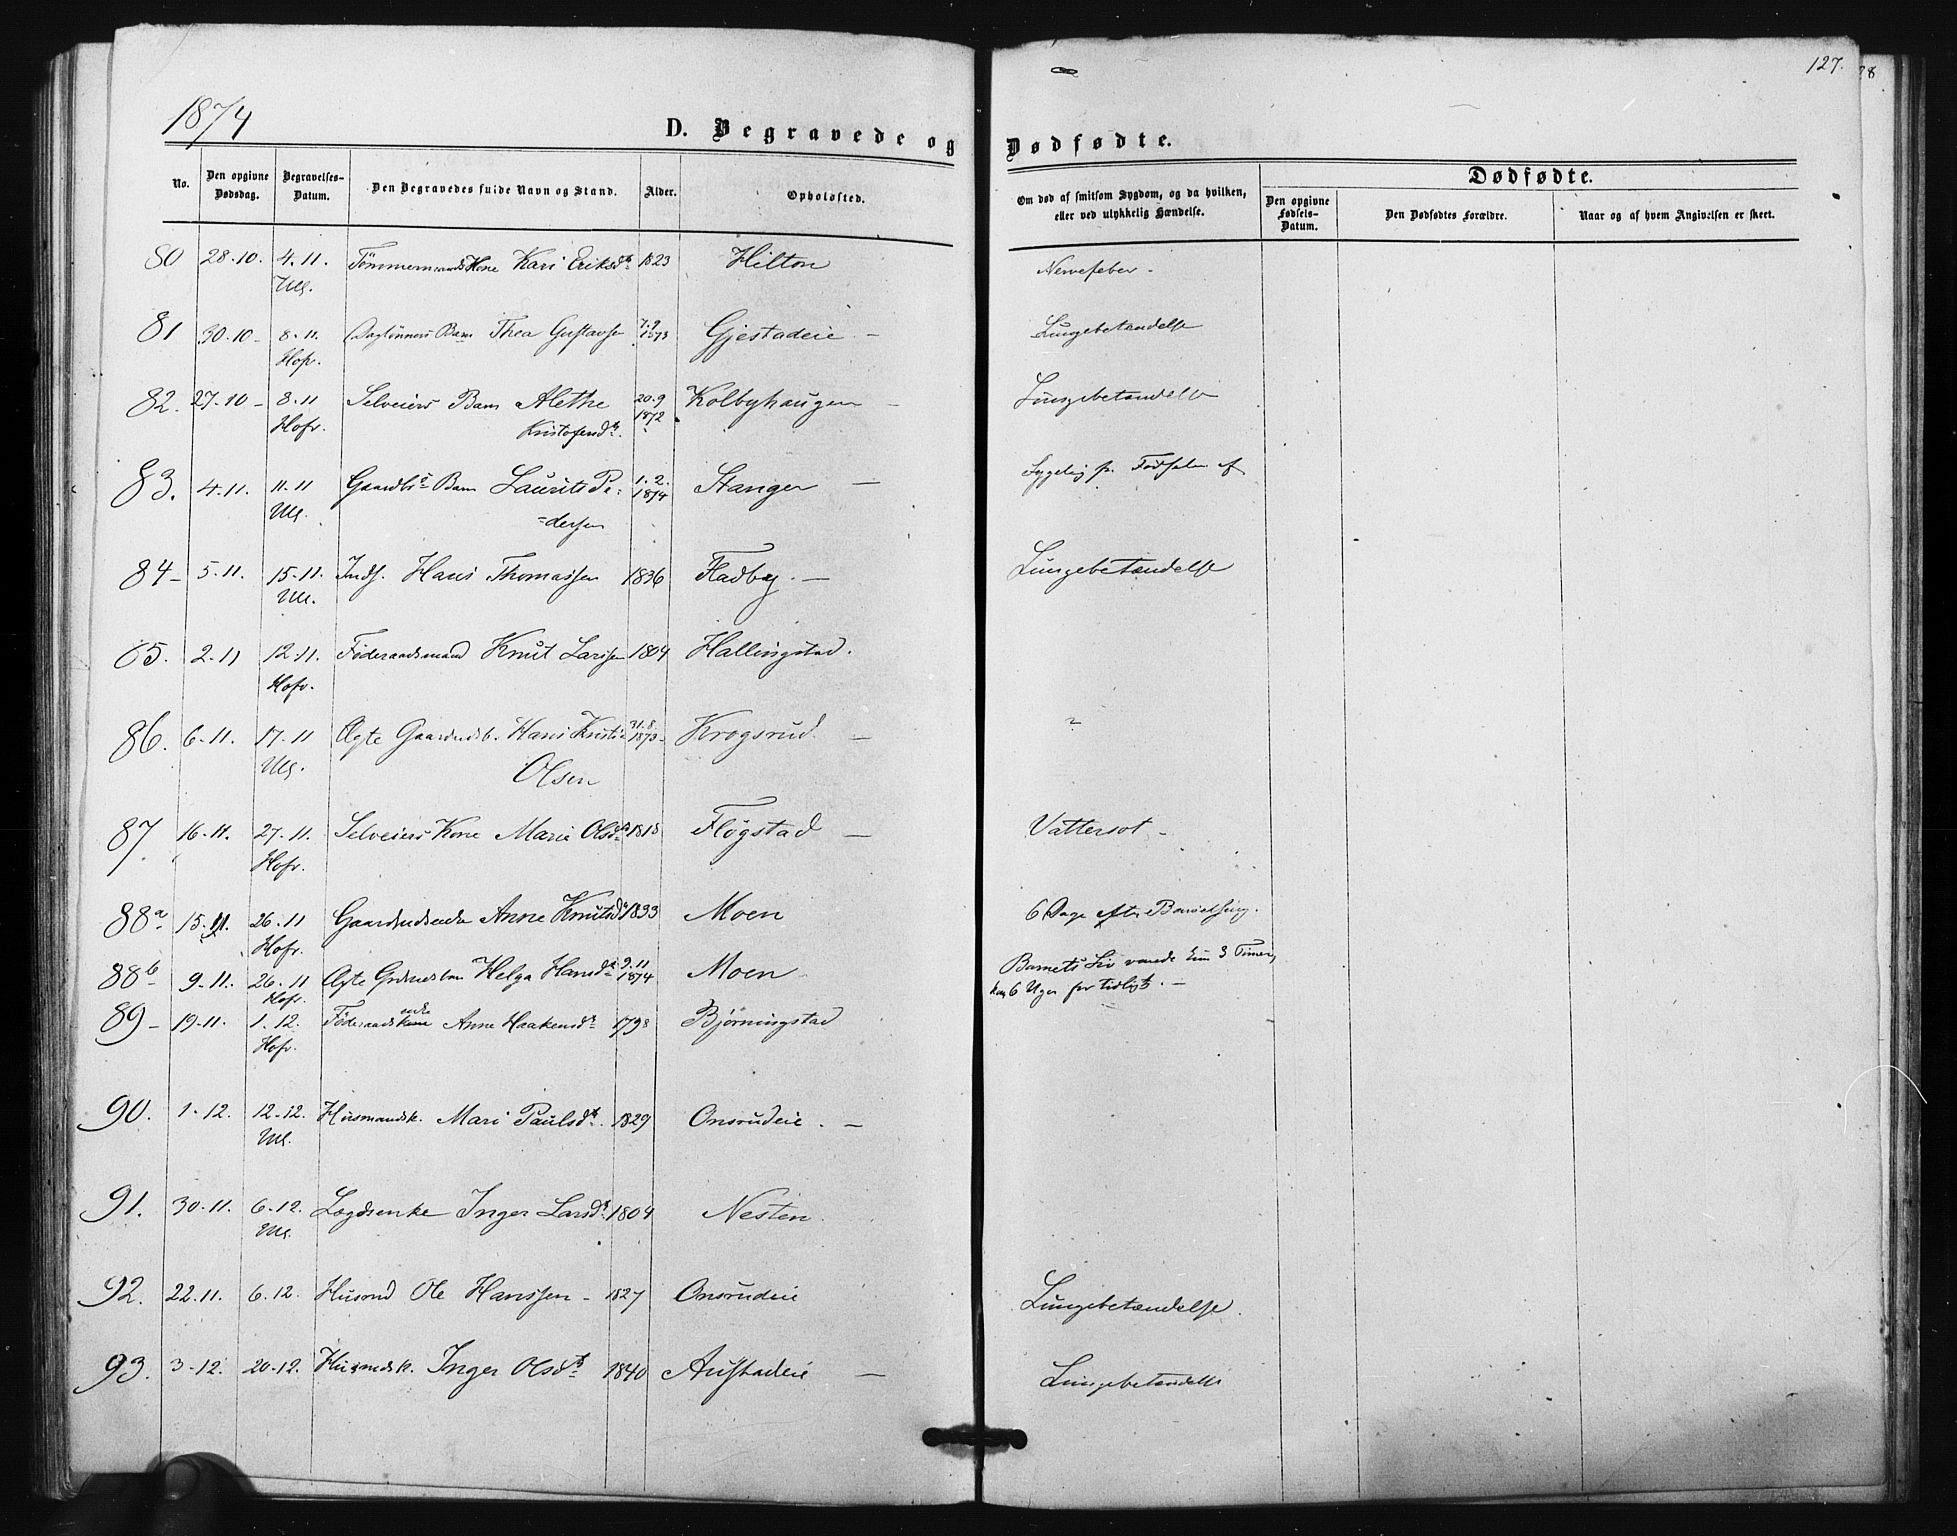 127.
28
1874
D. Begravede og Dødfødte.
No.
Den opgivne Dødsdag.
Begravelses-Datum.
Den Begravedes fulde Navn og Stand.
Alder.
Opholdsted.
Om død af smitsom Sygdom, og da hvilken, eller ved ulykkelig Hændelse.
Dødfødte.
Den opgivne Fødsels-Datum.
Den Dødfødtes Forældre.
Naar og af hvem Angivelsen er skeet.
80 28.10. 4.11. Tömmermands Kone Kari Eriksdt 1823 Hilton Nervefeber -
Ull.
81 30.10- 8.11. Daglönners Barn Thea Gustavsen 7.9 1873 Gjestadeie - Lungebetændelse
Hofr.
82. 27.10- 8.11 Selveiers Barn Alethe 20.9 1872 Kolbyhaugen - Lungebetændelse
Hofr. Kristofersdt.
83. 4.11. 11.11 Gaardbrs Barn Laurits Pe= 1.2. 1874 Stanger - Sygelig fr. Fødselen af
Ull. =dersen
84- 5.11. 15.11. Inds. Hans Thomassen 1836 Fladby. - Lungebetændelse
Ull.
85. 2.11 12.11. Föderaadsmand Knut Larssen 1804 Hallingstad.
Hofr.
86. 6.11. 17.11 Ægte Gaardmdsb. Hans Kristia 31.8. 1873- Krogsrud. -
Ull. Olsen
87. 16.11. 27.11. Selveiers Kone Marie Olsdt 1818 Flögstad - Vattersot -
Hofr.
88a 15.11. 26.11 Gaardmdsenke Anne Knutsdt 1833 Moen 6 Dage efter Barselseng.
Hofr.
88b- 9.11. 26.11 Ægte Grdmdsbarn Helga Hansdt 9.11 1874 Moen Barnets Liv varede kun 3 Timer,
Hofr. kom 6 Uger for tidligt. -
89- 19.11. 1.12. Föderaads enke Anne Haakensdt 1798 Bjørningstad
Hofr.
90. 1.12. 12.12. Husmandsk. Mari Paulsdt. 1829 Onsrudeie. -
Ull.
91. 30.11. 6.12. Lægdsenke Inger Larsdt 1804 Nesten.
Ull.
92. 22.11. 6.12. Husmd Ole Hanssen - 1827 Onsrudeie Lungebetændelse.
93. 3.12. 20.12. Husmdsk. Inger Olsdt 1840 Austadeie - Lungebetændelse